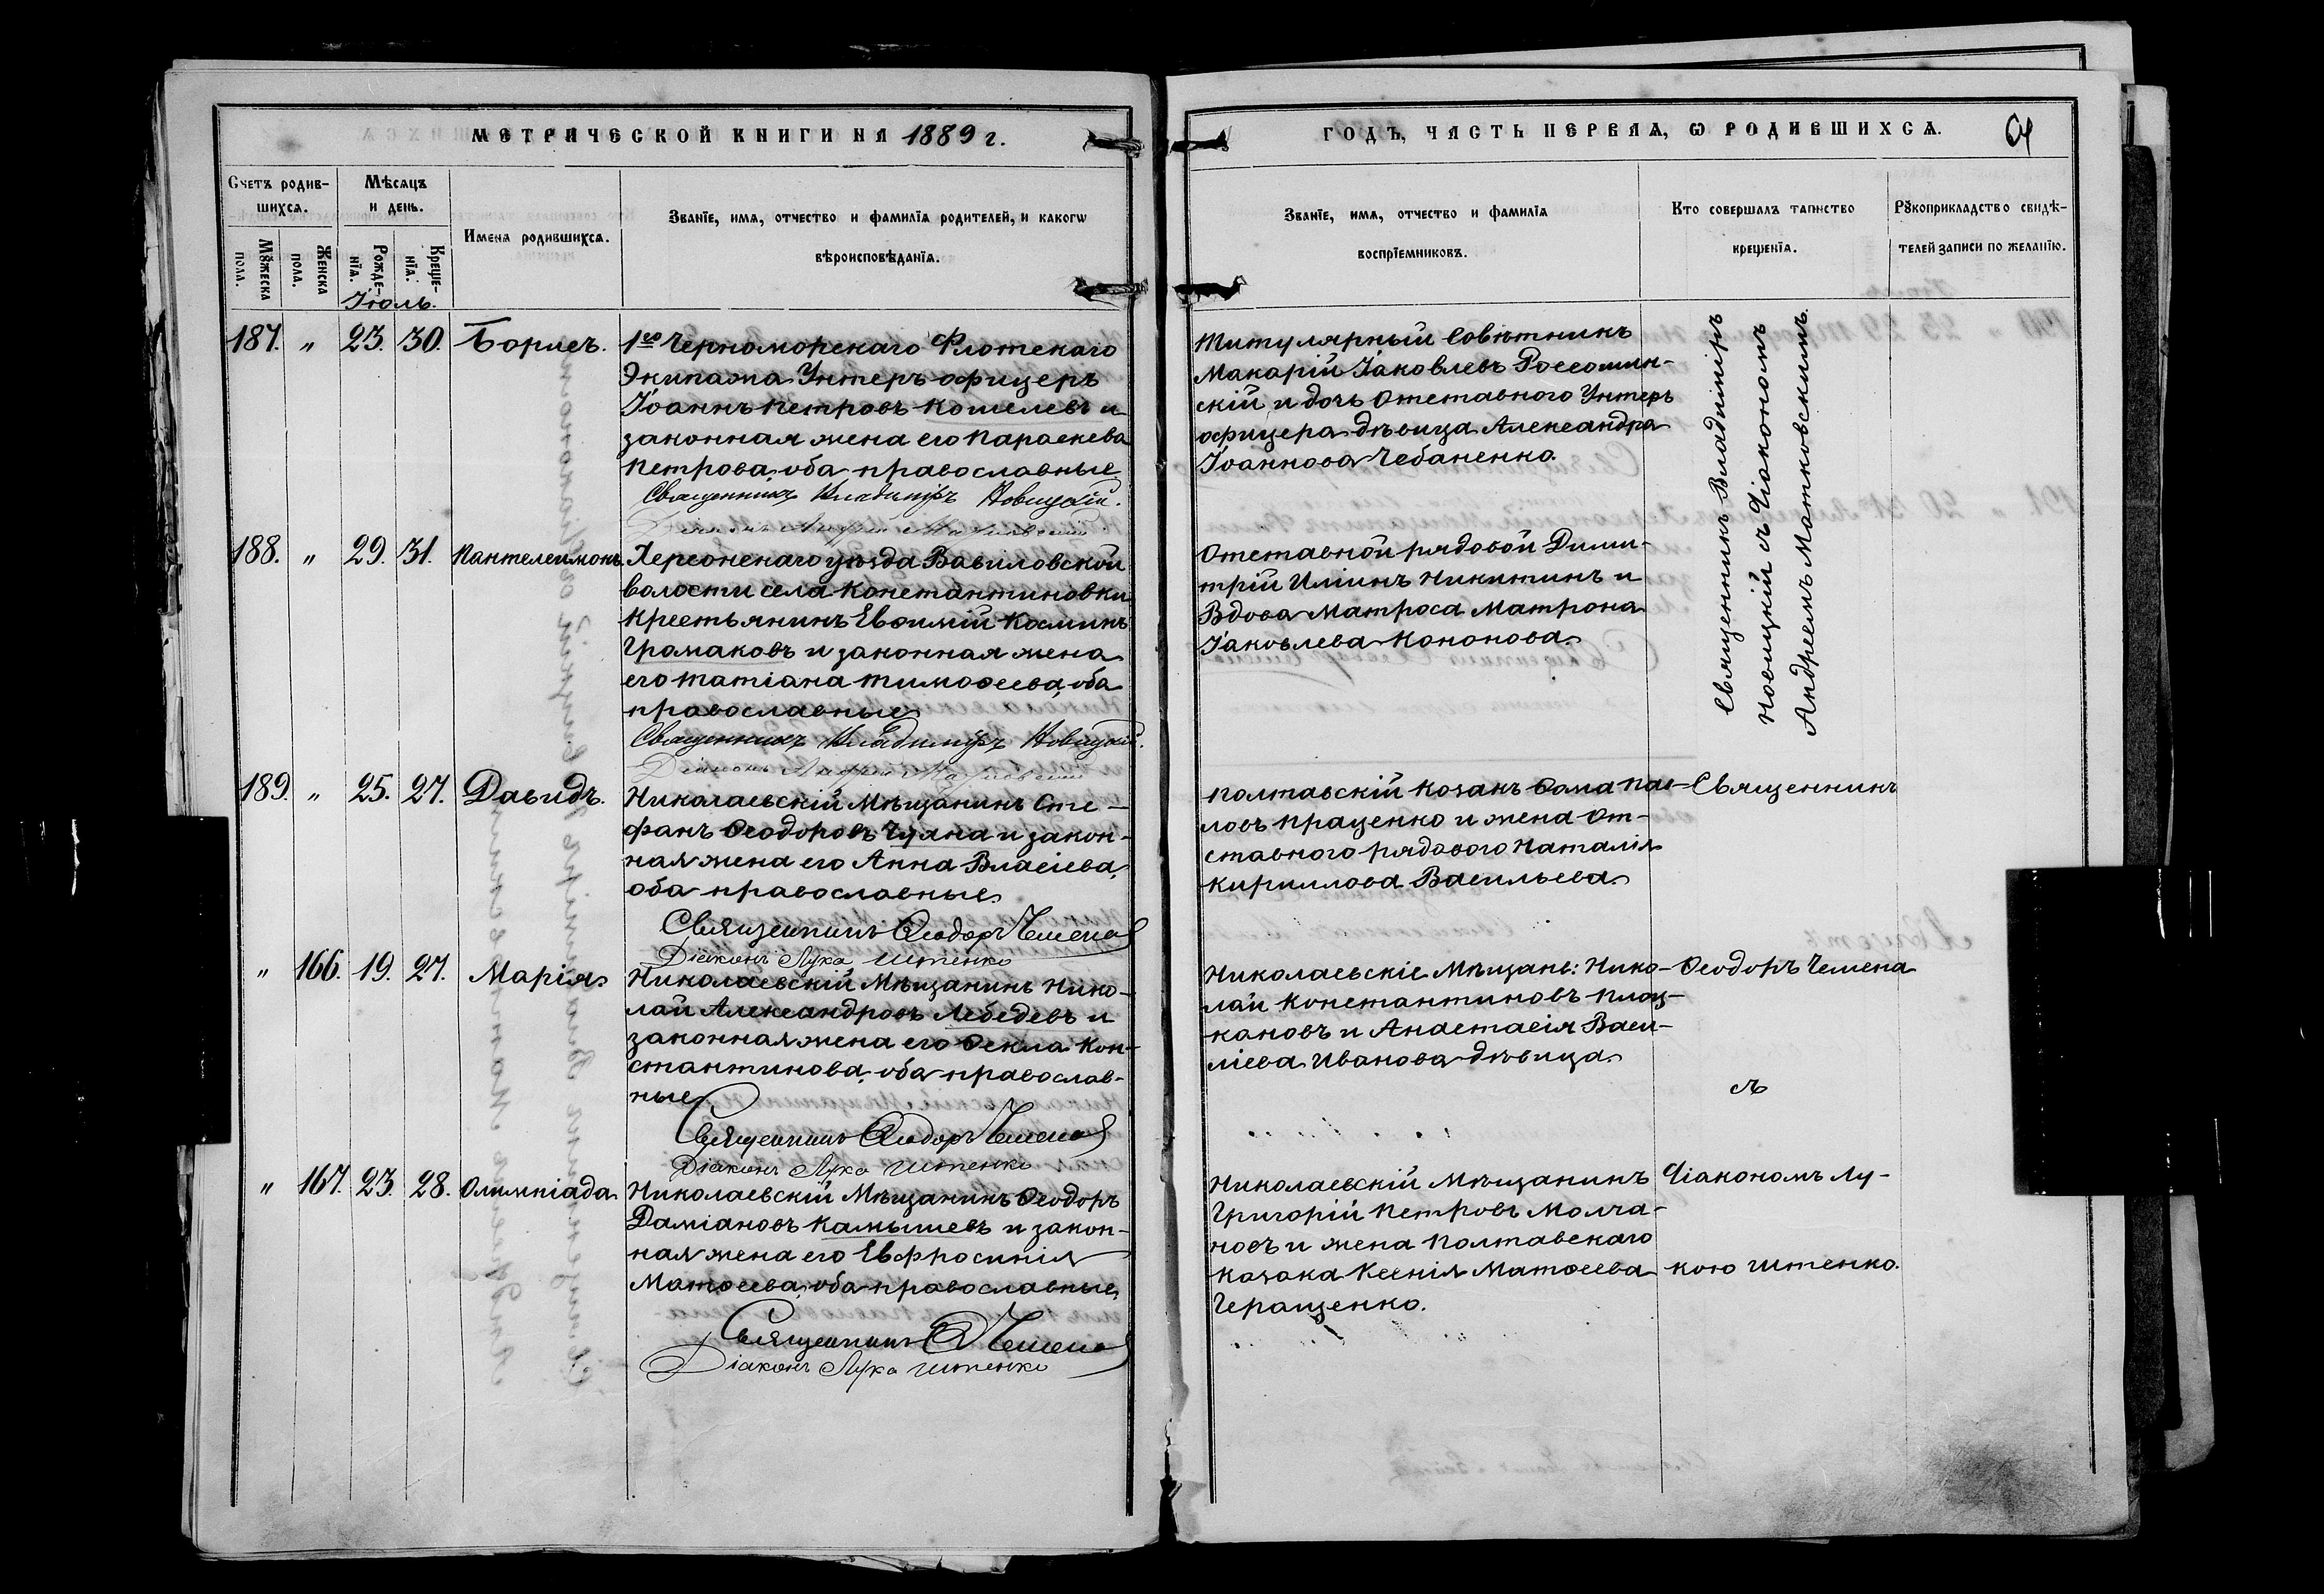 МЕТРИЧЕСКОЙ КНИГИ НА 1889 г.
Счетъ родив-
шихся.
Мѣсяцъ
и день.
Имена родившихся.
Званїе, имя, отчество и фамилїя родителей, и какогѡ
вѣроисповѣданїя.
Мꙋжеска
пола.
Женска
пола.
Рожде-
нїя.
Креще-
нїя.
Іюль.
187. " 23. 30. Борисъ.
1го Черноморскаго Флотскаго
Экипажа Унтеръ офицеръ
Іоаннъ Петровъ Кошелевъ и
законная жена его Параскева
Петрова, оба православные
Священникъ Владиміръ Новицкій.
188. " 29. 31. Пантелеимонъ.
Херсонскаго уѣзда Вавиловской
волости села Константиновки
Крестьянинъ Евѳимій Косминъ
Громаковъ и законная жена
его Татіана Тимоѳеева, оба
православные
Священникъ Владиміръ Новицкій.
189. " 25. 27. Давидъ.
Николаевскій Мѣщанинъ Сте-
фанъ Ѳеодоровъ Чуяна и закон-
ная жена его Анна Власіева,
оба православные
Священникъ Ѳеодоръ Чемена
Діаконъ Лука Штенко
" 166. 19. 27. Марія
Николаевскій Мѣщанинъ Нико-
лай Александровъ Лебедевъ и
законная жена его Ѳекла Кон-
стантинова, оба православ-
ные
Священникъ Ѳеодоръ Чемена
Діаконъ Лука Штенко
" 167. 23. 28. Олимпіада
Николаевскій Мѣщанинъ Ѳеодоръ
Даміановъ Камышевъ и закон-
ная жена его Евфросинія
Матѳеева, оба православные,
Священникъ Ѳ Чемена
Діаконъ Лука Штенко
ГОДЪ, ЧАСТЬ ПЕРВАЯ, Ѡ РОДИВШИХСЯ.
Званїе, имя, отчество и фамилїя
воспрїемниковъ.
Кто совершалъ таинство
крещенїя.
Рꙋкоприкладство свидѣ-
телей записи по желанїю.
Титулярный Совѣтникъ
Макарій Іаковлевъ Россошин-
скій и дочь Отставного Унтеръ
офицера дѣвица Александра
Іоаннова Чебаненко.
Священникъ Владиміръ
Новицкій съ Діакономъ
Андреемъ Матковскимъ.
Отставной рядовой Дими-
трій Иліинъ Никитинъ и
Вдова Матроса Матрона
Іаковлева Кононова.
Полтавскій Козакъ Ѳома Пав-
ловъ Праценко и жена От-
ставного рядового Наталія
Кириллова Васильева.
Священникъ
Николаевскіе Мѣщане: Нико-
лай Константиновъ Плоц-
кановъ и Анастасія Васи-
ліева Иванова дѣвица
Ѳеодоръ Чемена
съ
Николаевскій Мѣщанинъ
Григорій Петровъ Молча-
новъ и жена Полтавскаго
Козака Ксенія Матѳеева
Геращенко.
Діакономъ Лу-
кою Штенко.